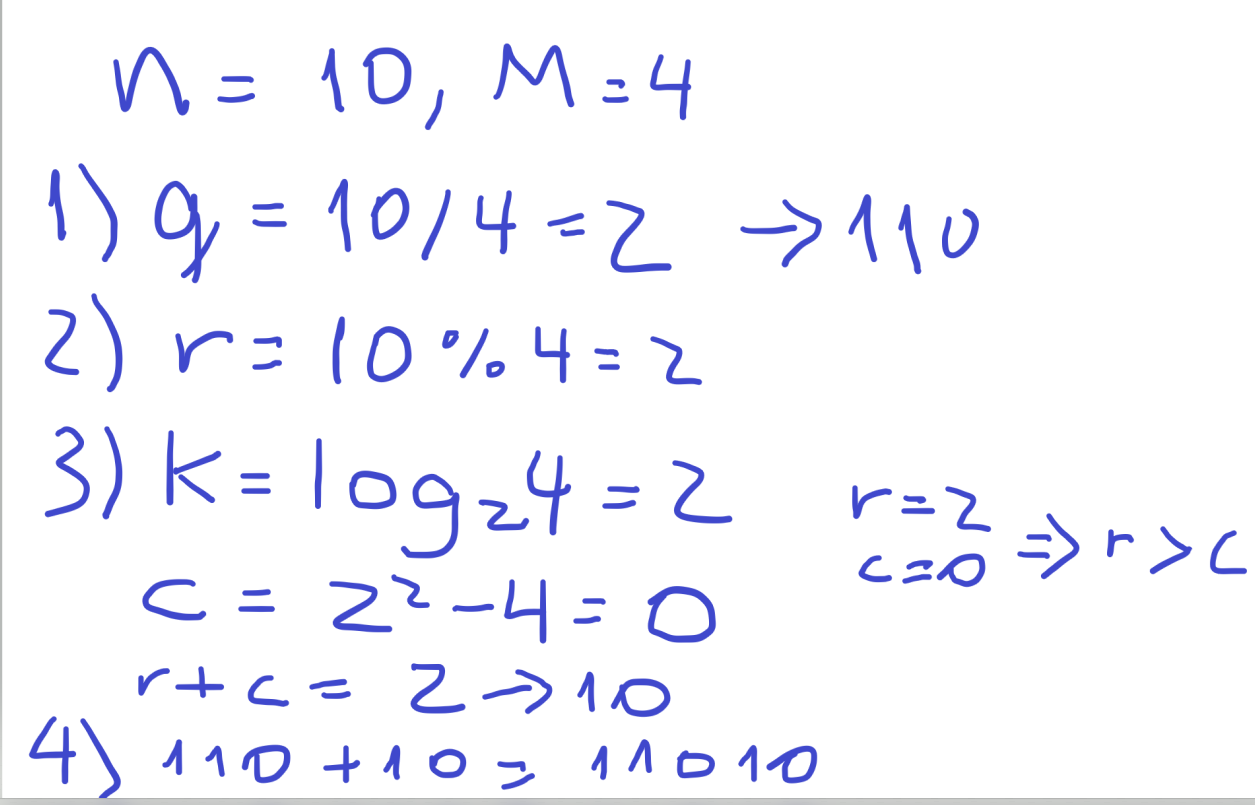 n = 10, M = 4
1) q = 10/4 = 2 → 110
2) r = 10 % 4 = 2
3) k = log₂4 = 2
c = 2² - 4 = 0
r = 2
c = 0 ⇒ r > c
r + c = 2 → 10
4) 110 + 10 = 11010